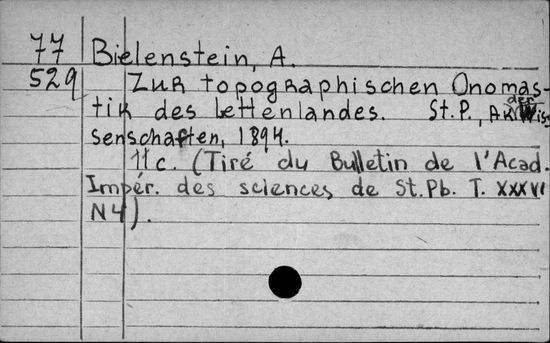 77 Bielenstein, A.
529 Zur topographischen Onomas-
tik des Lettenlandes. St.P., Ak. der Wis-
senschaften, 1894.
11 c. (Tiré du Bulletin de l'Acad.
Impér. des sciences de St.Pb. T. XXXVI
N4).